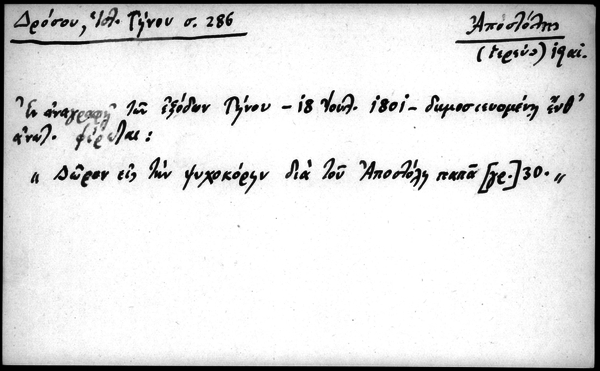 Δρόσου, Ἱστ. Τήνου σ. 286
Ἀποστόλης
(ἱερεύς) 19 αἰ.
Ἐν ἀναγραφῇ τῶν ἐξόδων Τήνου - 18 Ἰουλ. 1801 - δημοσιευομένῃ ἔνθ'
ἀνωτ. φέρεται:
„ Δῶρον εἰς τὴν ψυχοκόρην διὰ τοῦ Ἀποστόλη παπᾶ [γρ.] 30. „